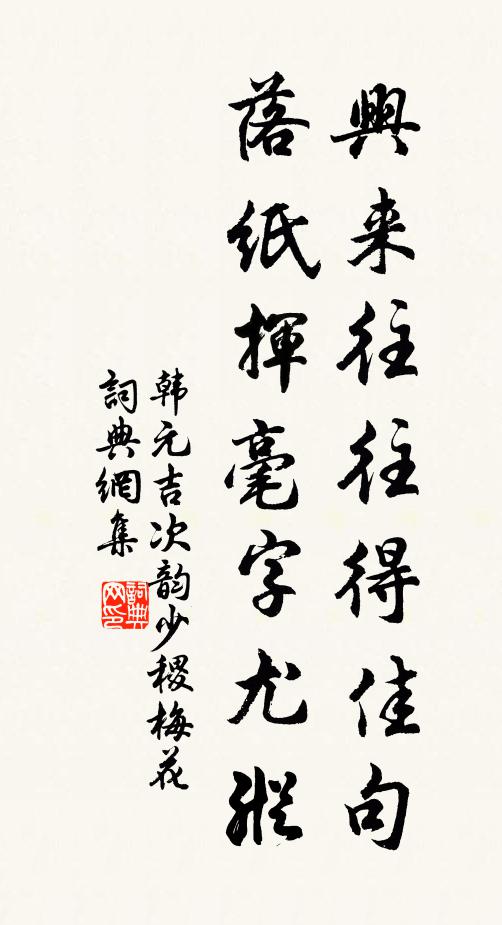 興来往往得佳句
落紙揮毫字尤縱
韩元吉次韵少稷梅花
詞典網集
詞典網印